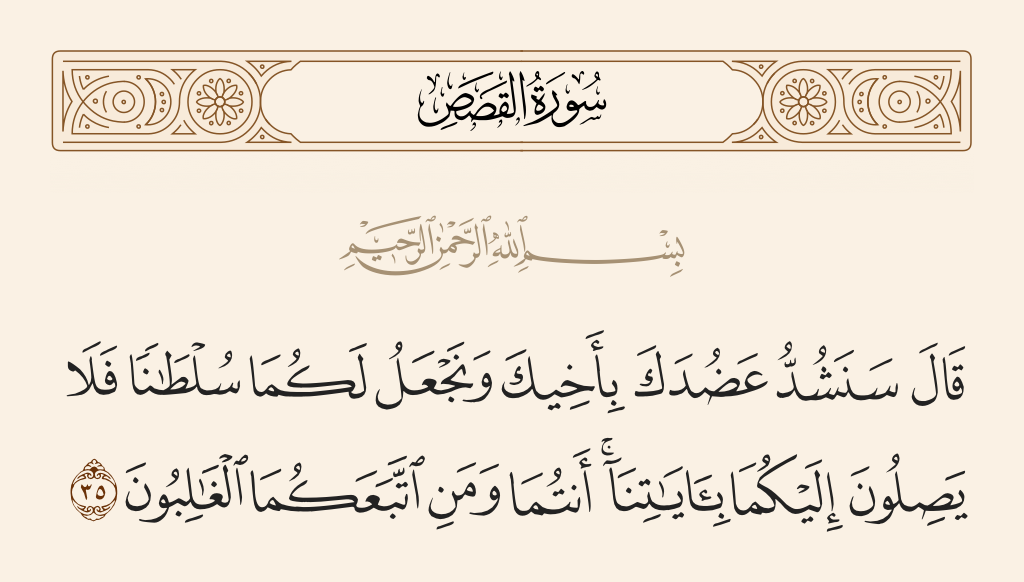 سُورَةُ القَصَصِ
بِسْمِ ٱللَّهِ ٱلرَّحْمَٰنِ ٱلرَّحِيمِ
قَالَ سَنَشُدُّ عَضُدَكَ بِأَخِيكَ وَنَجْعَلُ لَكُمَا سُلْطَٰنًا فَلَا
يَصِلُونَ إِلَيْكُمَا بِـَٔايَٰتِنَآ ۚ أَنتُمَا وَمَنِ ٱتَّبَعَكُمَا ٱلْغَٰلِبُونَ ٣٥